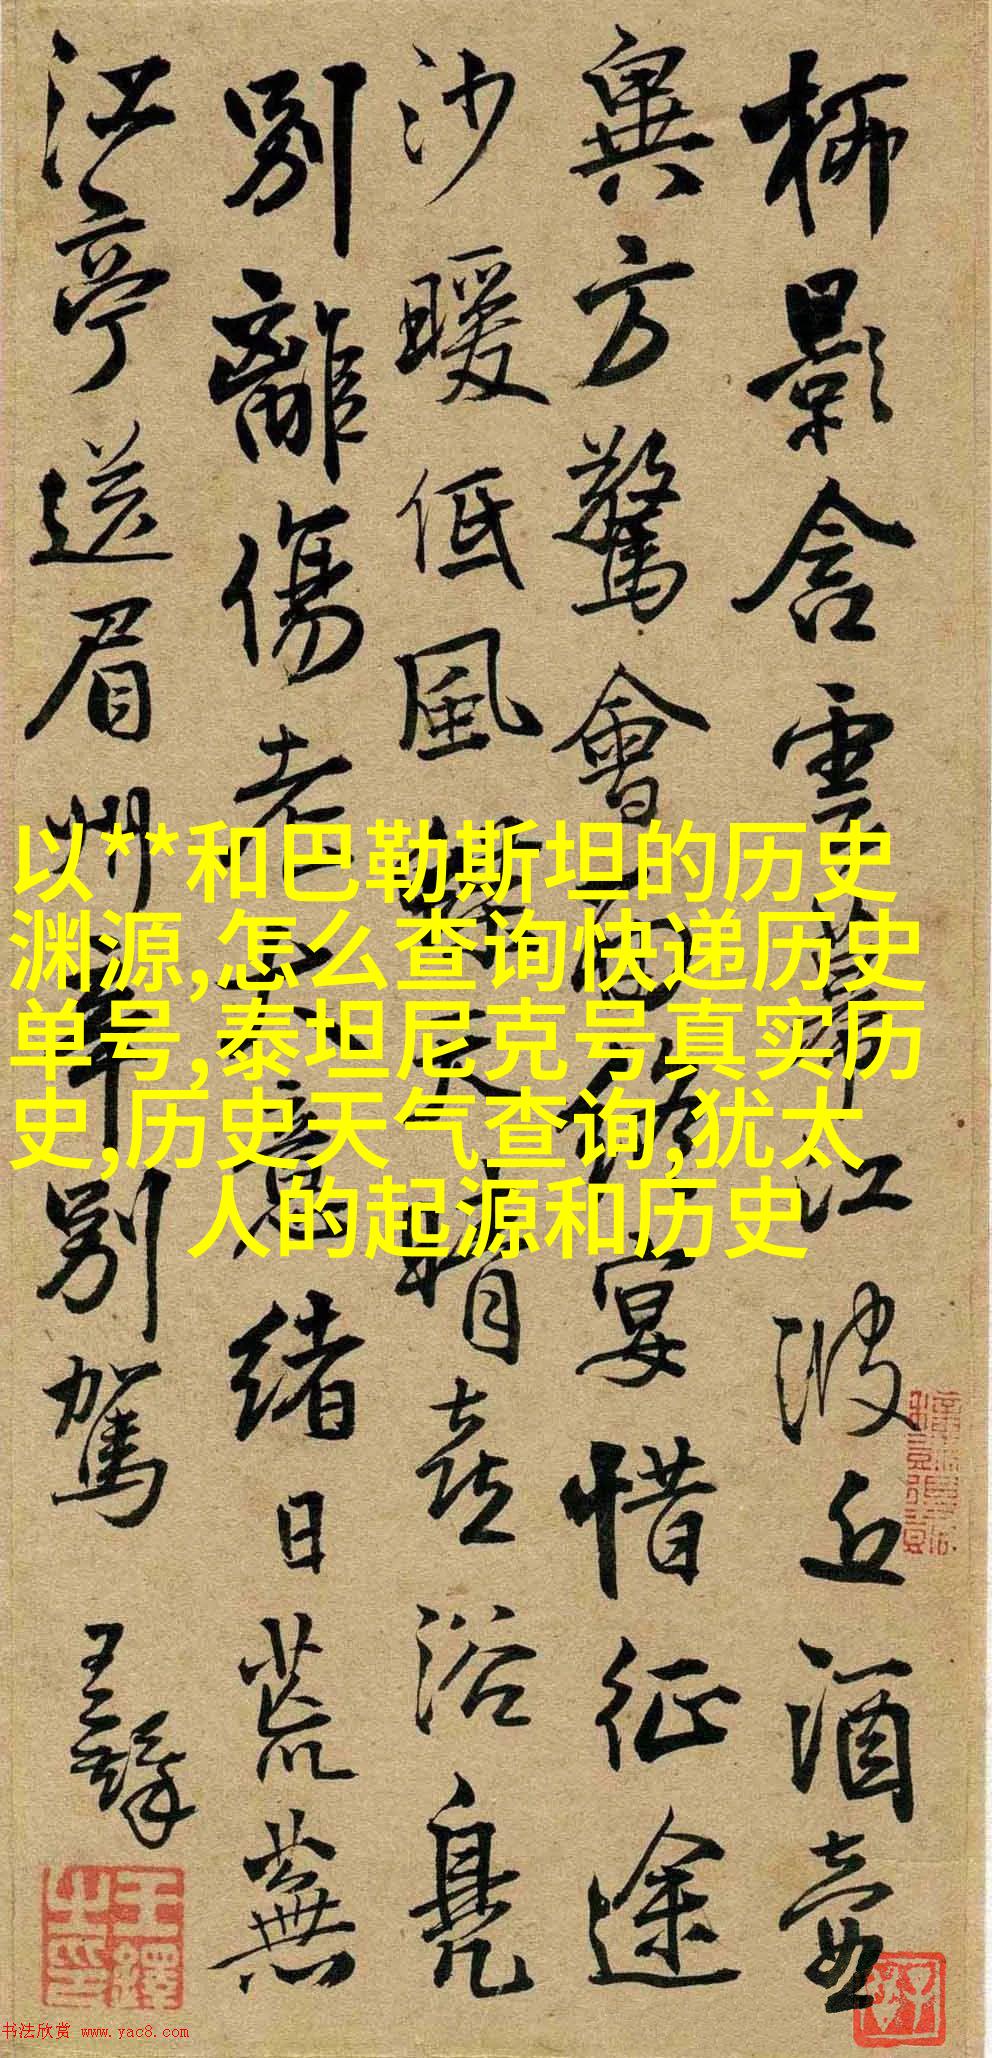 柳影含雲幕江波近酒壺
異方驚會面終宴惜征途
沙暖低風蝶天晴喜浴鳧
別離傷老大意緒日荒蕪
江亭送眉州辛別駕 王鐸
王鐸之印
以**和巴勒斯坦的历史
渊源,怎么查询快递历史
单号,泰坦尼克号真实历
史,历史天气查询,犹太
人的起源和历史
书法欣赏 www.yac8.com